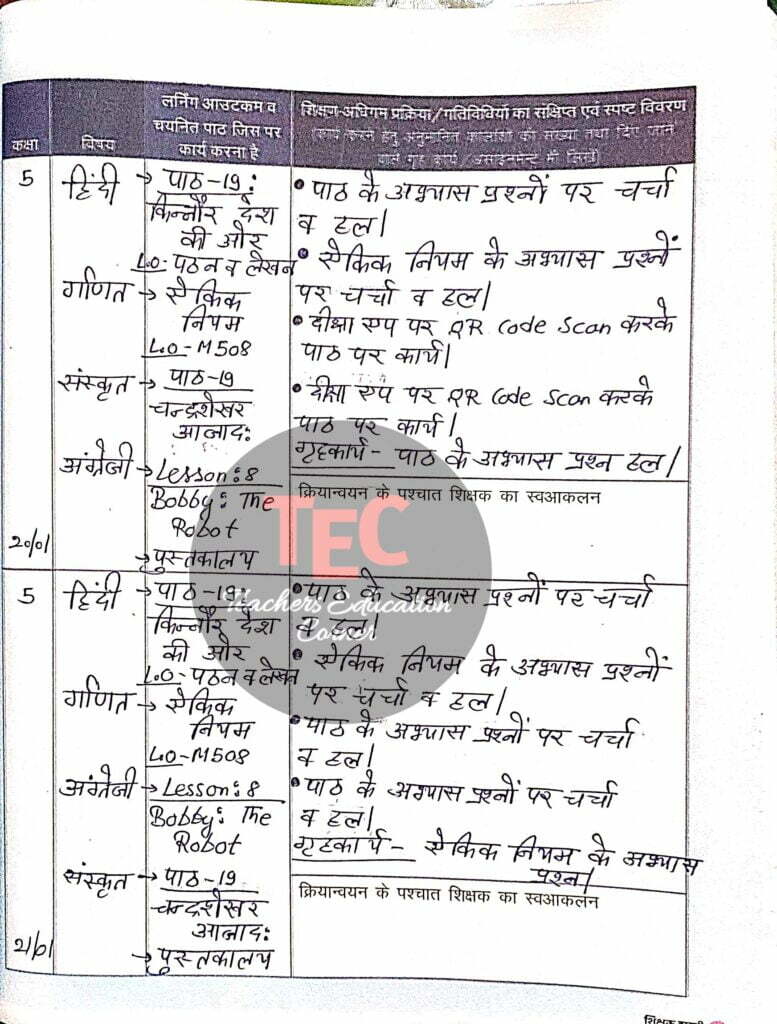 कक्षा
विषय
लर्निंग आउटकम व
चयनित पाठ जिस पर
कार्य करना है
शिक्षण-अधिगम प्रक्रिया/गतिविधियों का संक्षिप्त एवं स्पष्ट विवरण
(कार्य करने हेतु अनुमानित कालांशों की संख्या तथा दिए जाने
वाले गृह कार्य/असाइनमेन्ट भी लिखें)
5
हिंदी → पाठ-19:
किन्नौर देश
की ओर
L.O- पठन व लेखन
गणित → ऐकिक
नियम
L.O-M508
संस्कृत → पाठ-19
चन्द्रशेखर
आजाद:
अंग्रेजी → Lesson:8
Bobby: The
Robot
→ पुस्तकालय
20/01
• पाठ के अभ्यास प्रश्नों पर चर्चा
व हल।
• ऐकिक नियम के अभ्यास प्रश्नों
पर चर्चा व हल।
• दीक्षा एप पर QR Code Scan करके
पाठ पर कार्य।
• दीक्षा एप पर QR Code Scan करके
पाठ पर कार्य।
गृहकार्य - पाठ के अभ्यास प्रश्न हल।
क्रियान्वयन के पश्चात शिक्षक का स्वआकलन
TEC
Teachers Education
Corner
5
हिंदी → पाठ-19:
किन्नौर देश
की ओर
L.O- पठन व लेखन
गणित → ऐकिक
नियम
L.O-M508
अंग्रेजी → Lesson:8
Bobby: The
Robot
संस्कृत → पाठ-19
चन्द्रशेखर
आजाद:
→ पुस्तकालय
21/01
• पाठ के अभ्यास प्रश्नों पर चर्चा
व हल।
• ऐकिक नियम के अभ्यास प्रश्नों
पर चर्चा व हल।
• पाठ के अभ्यास प्रश्नों पर चर्चा
व हल।
• पाठ के अभ्यास प्रश्नों पर चर्चा
व हल।
गृहकार्य - ऐकिक नियम के अभ्यास
प्रश्न।
क्रियान्वयन के पश्चात शिक्षक का स्वआकलन
शिक्षक